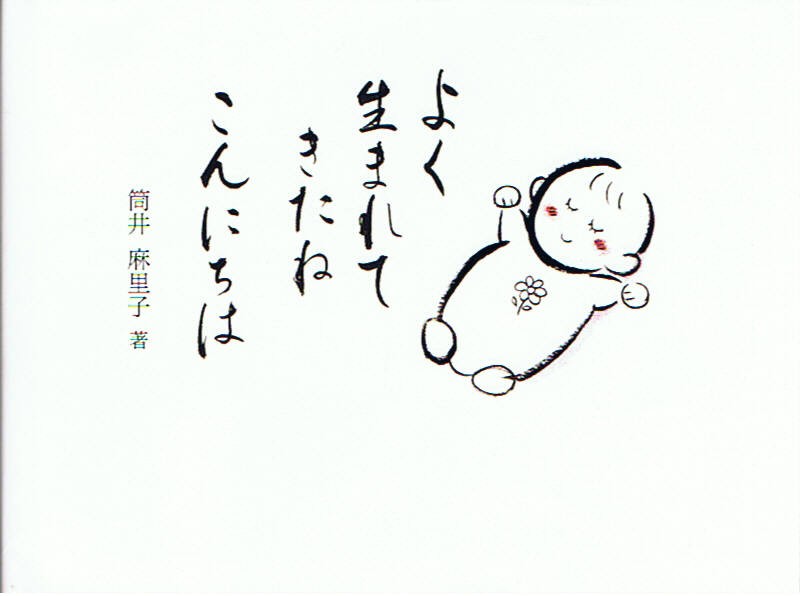 よく
生まれて
きたね
こんにちは
筒井 麻里子 著